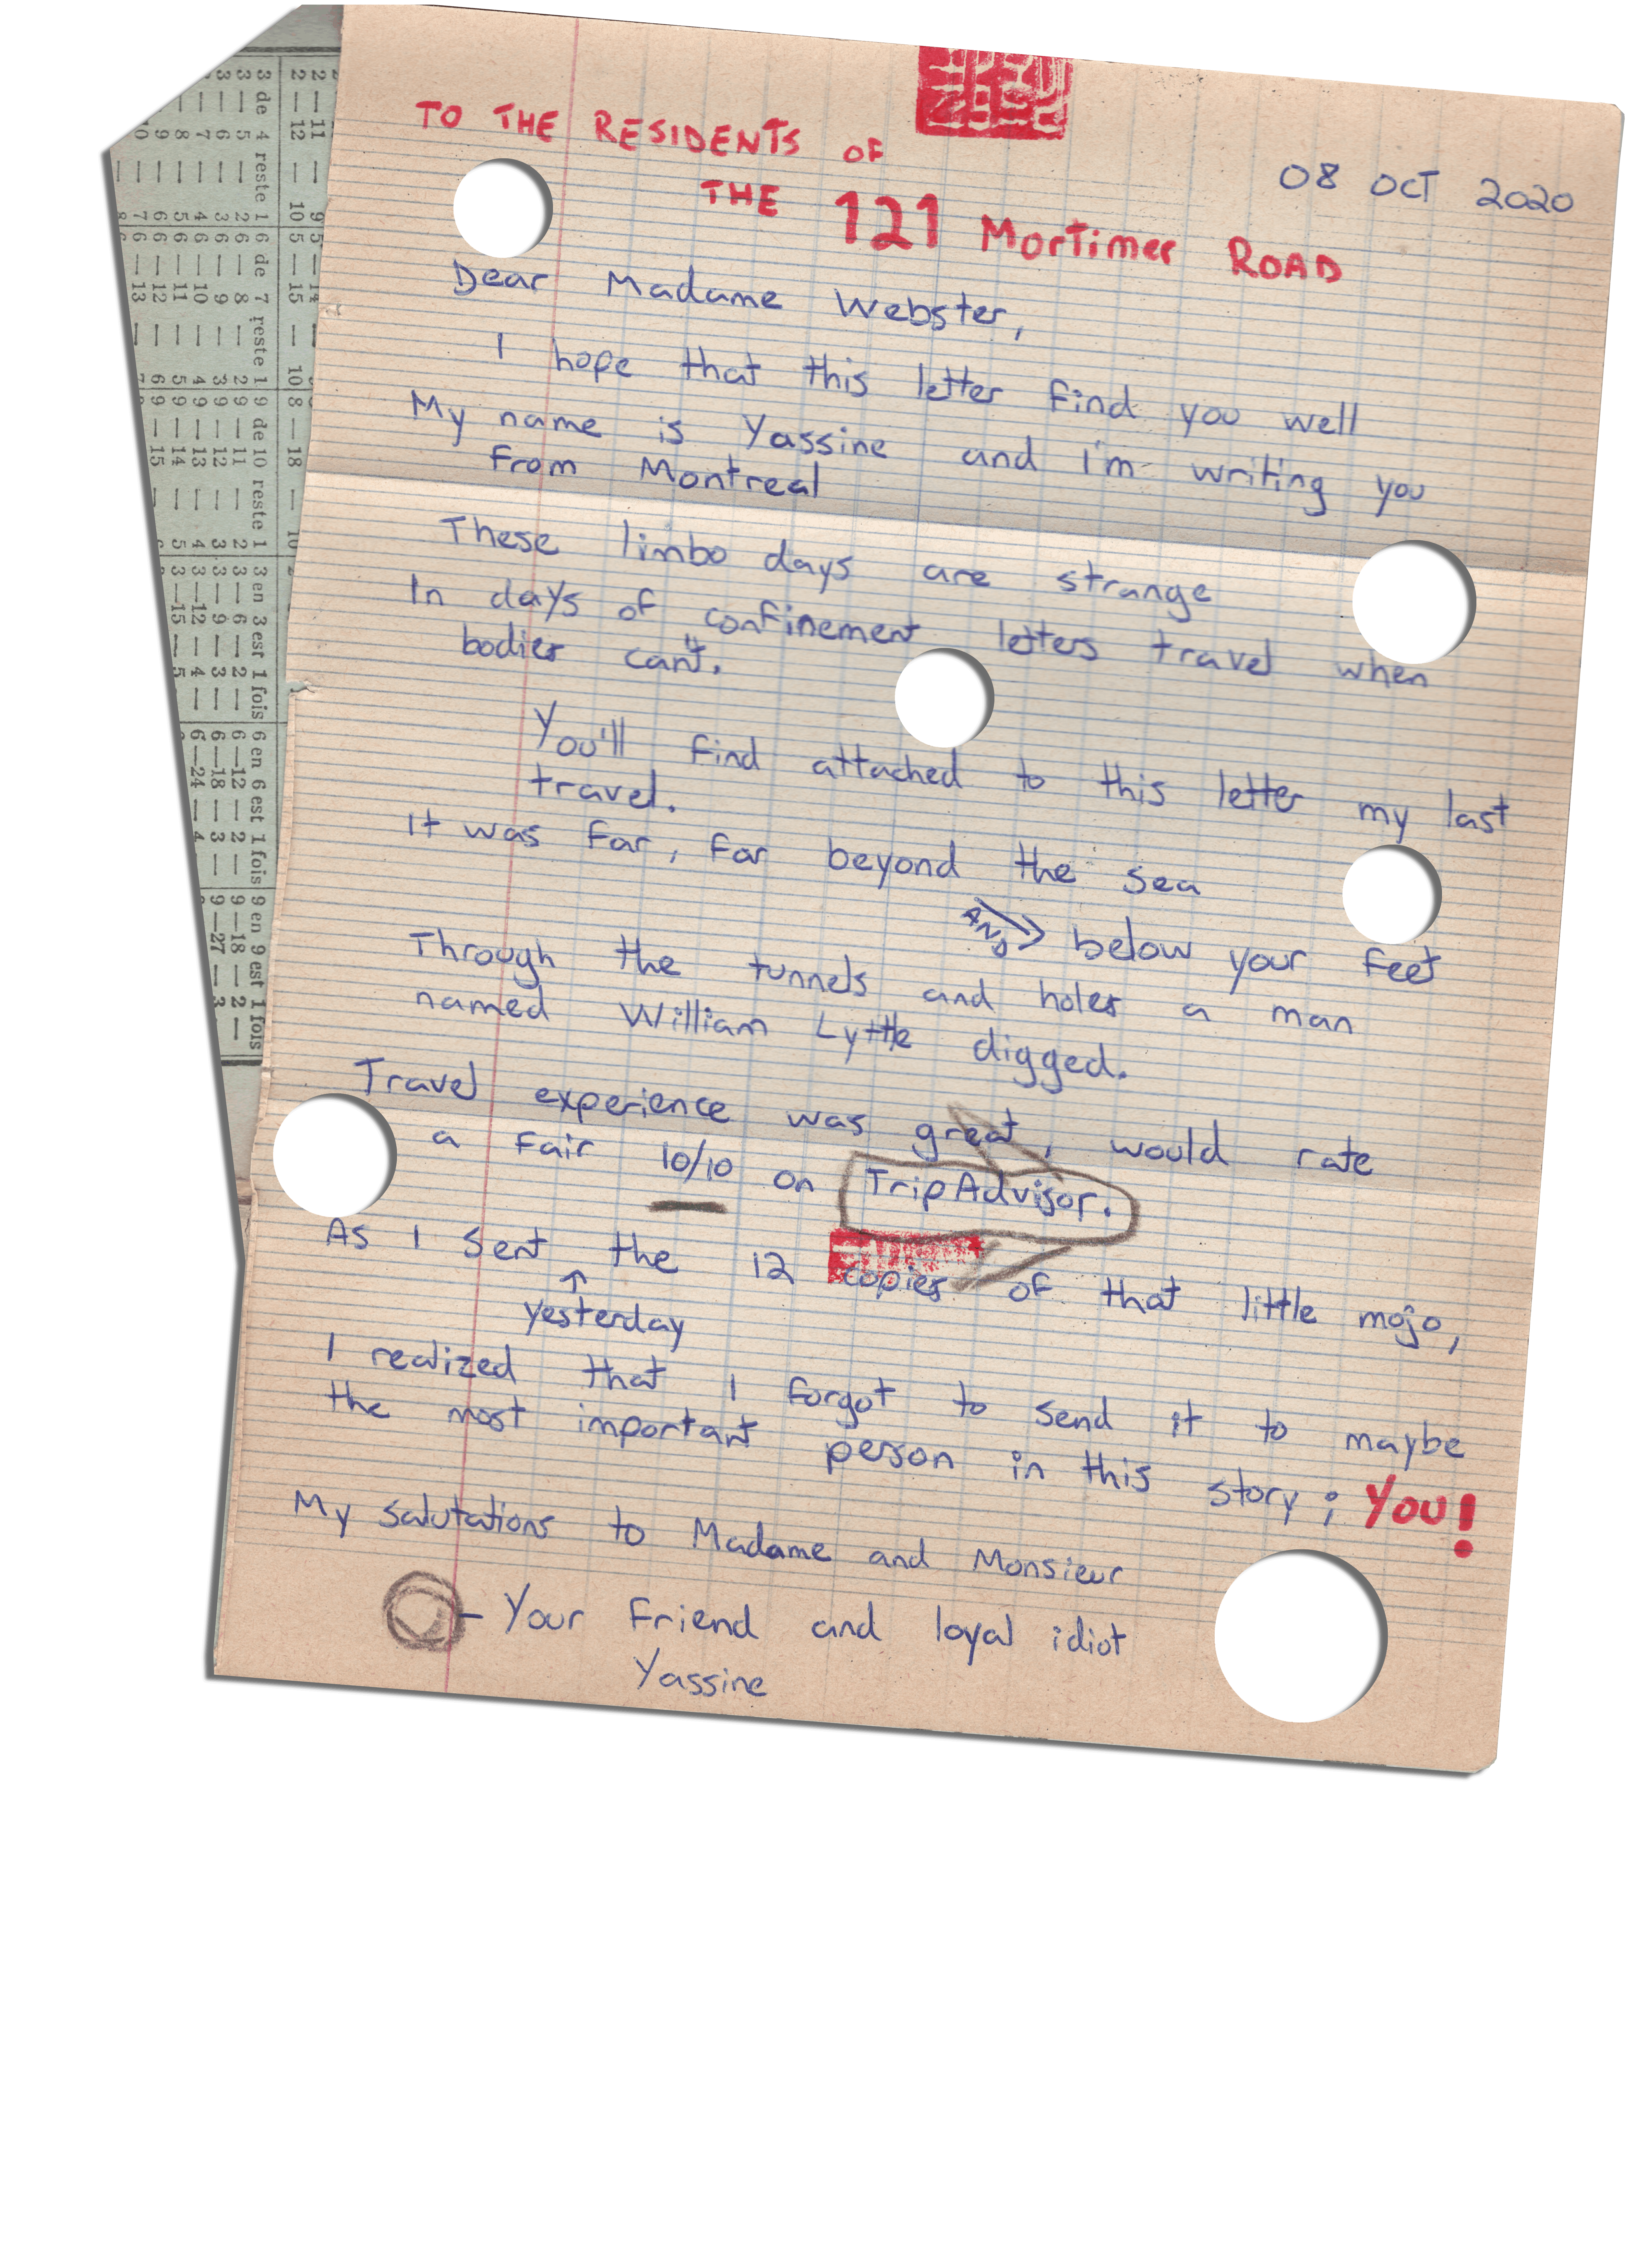 TO THE RESIDENTS OF
08 OCT 2020
THE 121 Mortimer ROAD
Dear Madame Webster,
I hope that this letter find you well
My name is Yassine and i'm writing you
from Montreal
These limbo days are strange
In days of confinement letters travel when
bodies can't.
You'll find attached to this letter my last
travel.
It was far, far beyond the sea
AND below your feet
Through the tunnels and holes a man
named William Lyttle digged.
Travel experience was great, would rate
a fair 10/10 on TripAdvisor.
As I sent the 12 copies of that little mojo,
yesterday
I realized that I forgot to send it to maybe
the most important person in this story; YOU!
My salutations to Madame and Monsieur
- Your friend and loyal idiot
Yassine
3 de 4 reste 1 6 de 7 reste 1 9 de 10 reste 1 3 en 3 est 1 fois 6 en 6 est 1 fois 9 en 9 est 1 fois